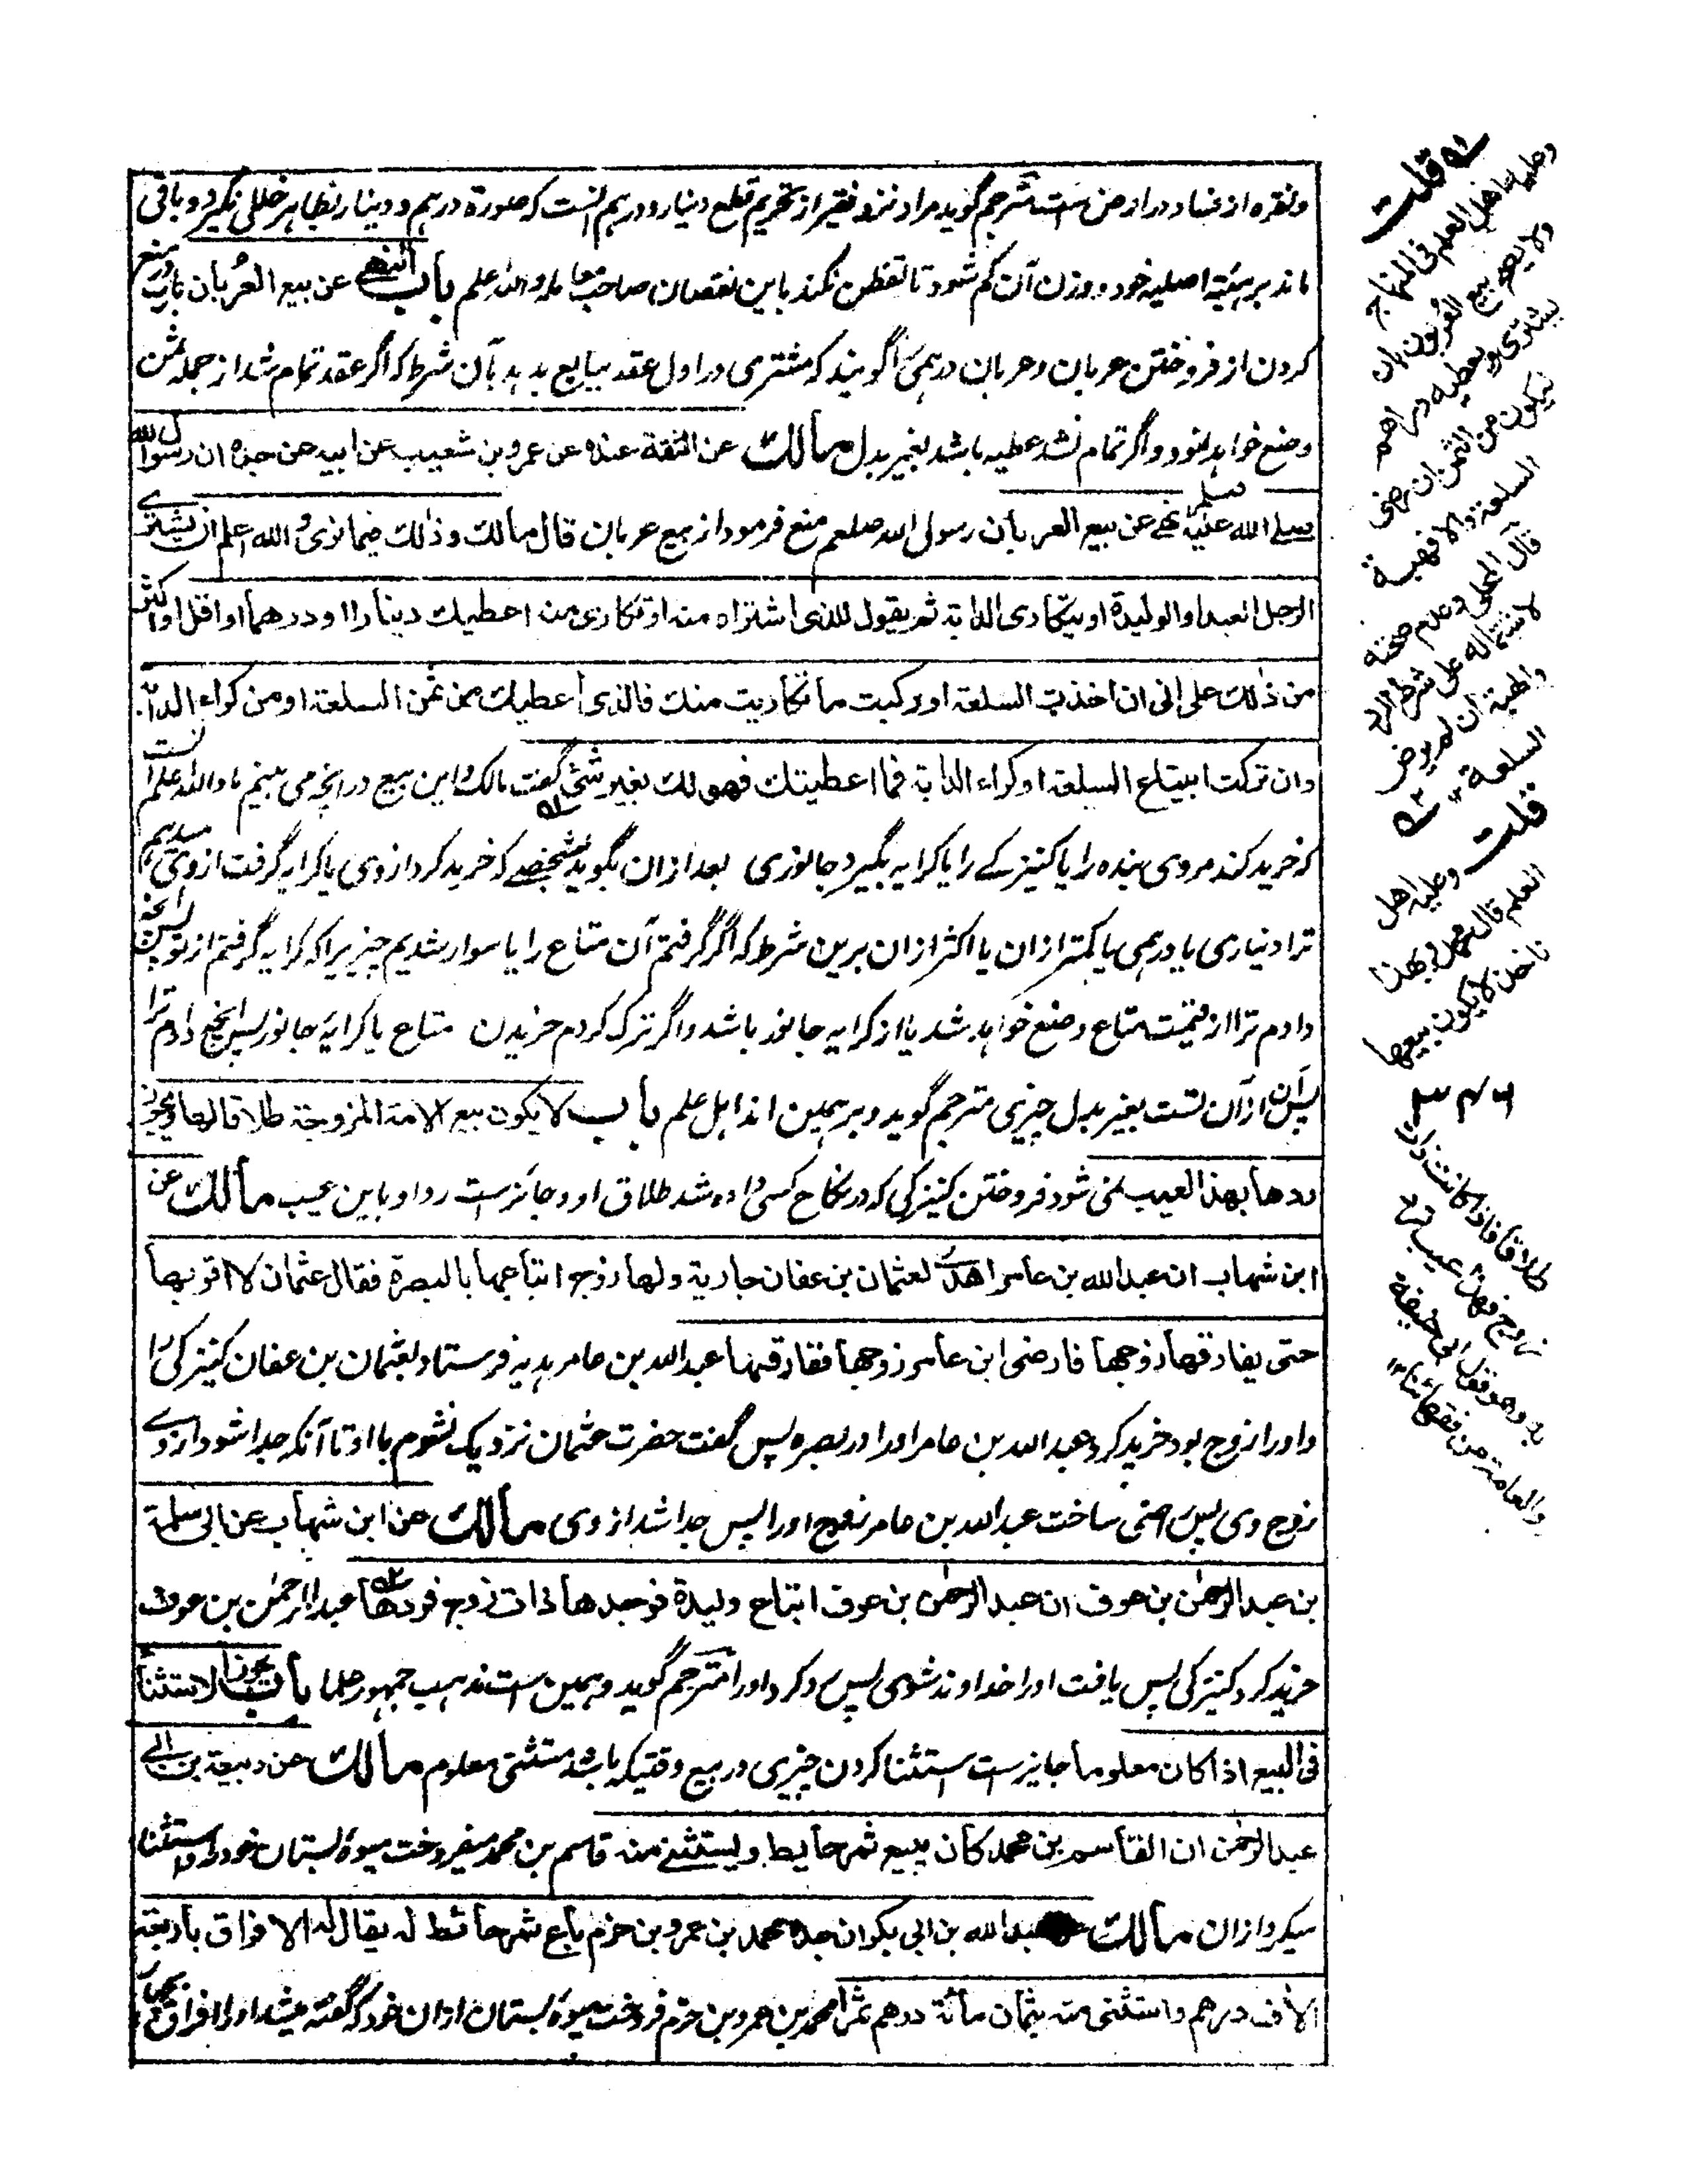 ونقره از فساد در ارض ست مترجم گوید مراد نزد فقیر از تحریم قطع دینار و درهم آنست که صورة درهم و دینار بظاهر خللی نگیرد و باقی
ماند بر هیئیة اصلیه خود و وزن آن کم شود تا تفطن نکند باین نقصان صاحب معامله والله اعلم باب النهی عن بیع العُربان باب در منع
کردن از فروختن عربان وعربان درهمی را گویند که مشتری در اول عقد ببایع بدهد بآن شرط که اگر عقد تمام شد از جمله ثمن
وضع خواهد نمود و اگر تمام نشد عطیه باشد بغیر بدل مالك عن الثقة عنده عن عمرو بن شعیب عن ابیه عن جده ان رسول الله
صلی الله علیه وسلم نهی عن بیع العربان رسول الله صلعم منع فرمود از بیع عربان قال مالك وذلك فیما نری والله اعلم ان یشتری
الرجل العبد او الولیدة او یتکاری الدابة ثم یقول للذی اشتراه منه او تکاری منه اعطیك دینارا او درهما او اقل او اکثر
من ذلك علی انی ان اخذت السلعة او رکبت ما تکاریت منك فالذی اعطیك من ثمن السلعة او من کراء الدابة
وان ترکت ابتیاع السلعة او کراء الدابة فما اعطیتك فهو لك بغیر شئ گفت مالک و این بیع در آنچه می بینیم ما والله اعلم آنست
که خرید کند مردی بنده را یا کنیزکے را یا کرایه بگیرد جانوری بعد ازان بگوید شخصے که خرید کرد از وی یا کرایه گرفت از وی میدهم
ترا دیناری یا درهمی یا کمتر ازان یا اکثر ازان برین شرط که اگر گرفتم آن متاع را یا سوار شدیم چیزیرا که کرایه گرفتم از تو پس آنچه
دادم ترا از قیمت متاع وضع خواهد شد یا از کرایه جانور باشد و اگر ترک کردم خریدن متاع یا کرایۀ جانور پس آنچه دادم ترا
پس آن ازآن تست بغیر بدل چیزی مترجم گوید و برهمین اند اهل علم باب لا یکون بیع الامة المزوجة طلاقا لها ویجوز
ردها بهذا العیب نمی شود فروختن کنیزکی که در نکاح کسی داده شد طلاق او و جائزست رد او باین عیب مالك عن
ابن شهاب ان عبدالله بن عامر اهدی لعثمان بن عفان جاریة ولها زوج ابتاعها بالبصرة فقال عثمان لا اقربها
حتی یفارقها زوجها فارضی ابن عامر زوجها ففارقها عبدالله بن عامر بهدیه فرستاد بعثمان بن عفان کنیزکی را
و او را زوج بود خرید کرد عبدالله بن عامر او را در بصره پس گفت حضرت عثمان نزدیک نشوم با او تا آنکه جدا شود از وے
زوج وی پس راضی ساخت عبدالله بن عامر زوج او را پس جدا شد از وی مالك عن ابن شهاب عن ابی سلمة
بن عبد الرحمٰن بن عوف ان عبد الرحمٰن بن عوف ابتاع ولیدة فوجدها ذات زوج فردها عبد الرحمٰن بن عوف
خرید کرد کنیزکی پس یافت او را خداوند شوی پس رد کرد او را مترجم گوید و همین ست مذهب جمهور علما باب یجوز الاستثناء
فی البیع اذا کان معلوما جایزست استثنا کردن چیزی در بیع وقتیکه باشد مستثنی معلوم مالك عن ربیعة بن ابی
عبد الرحمٰن ان القاسم بن محمد کان یبیع ثمر حایطه ویستثنی منه قاسم بن محمد میفروخت میوۀ بستان خود را و استثنا
میکرد ازان مالك عن عبدالله بن ابی بکر ان جده محمد بن عمرو بن حزم باع ثمر حائط له یقال له الافراق باربعة
الاف درهم واستثنی منه بثمان مائة درهم تمرا محمد بن عمرو بن حزم فروخت میوۀ بستان ازان خود که گفته میشد او را افراق بچهار
۱ قلت
وعلیه اهل العلم فی المنهاج
ولا یصح بیع العربون بان
یشتری ویعطیه دراهم
لیکون من الثمن ان رضی
السلعة والا فهبة
قال المحلی وعدم صحته
لاشتماله علی شرط الرد
والهبة ان لم یرض
السلعة ۱۲
قلت وعلیه اهل
العلم قال محمد وبهذا
ناخذ لا یکون بیعها
طلاقا فاذا کانت ذات
زوج فهذا عیب ترد
به وهو قول ابی حنیفة
والعامة من فقهائنا ۱۲